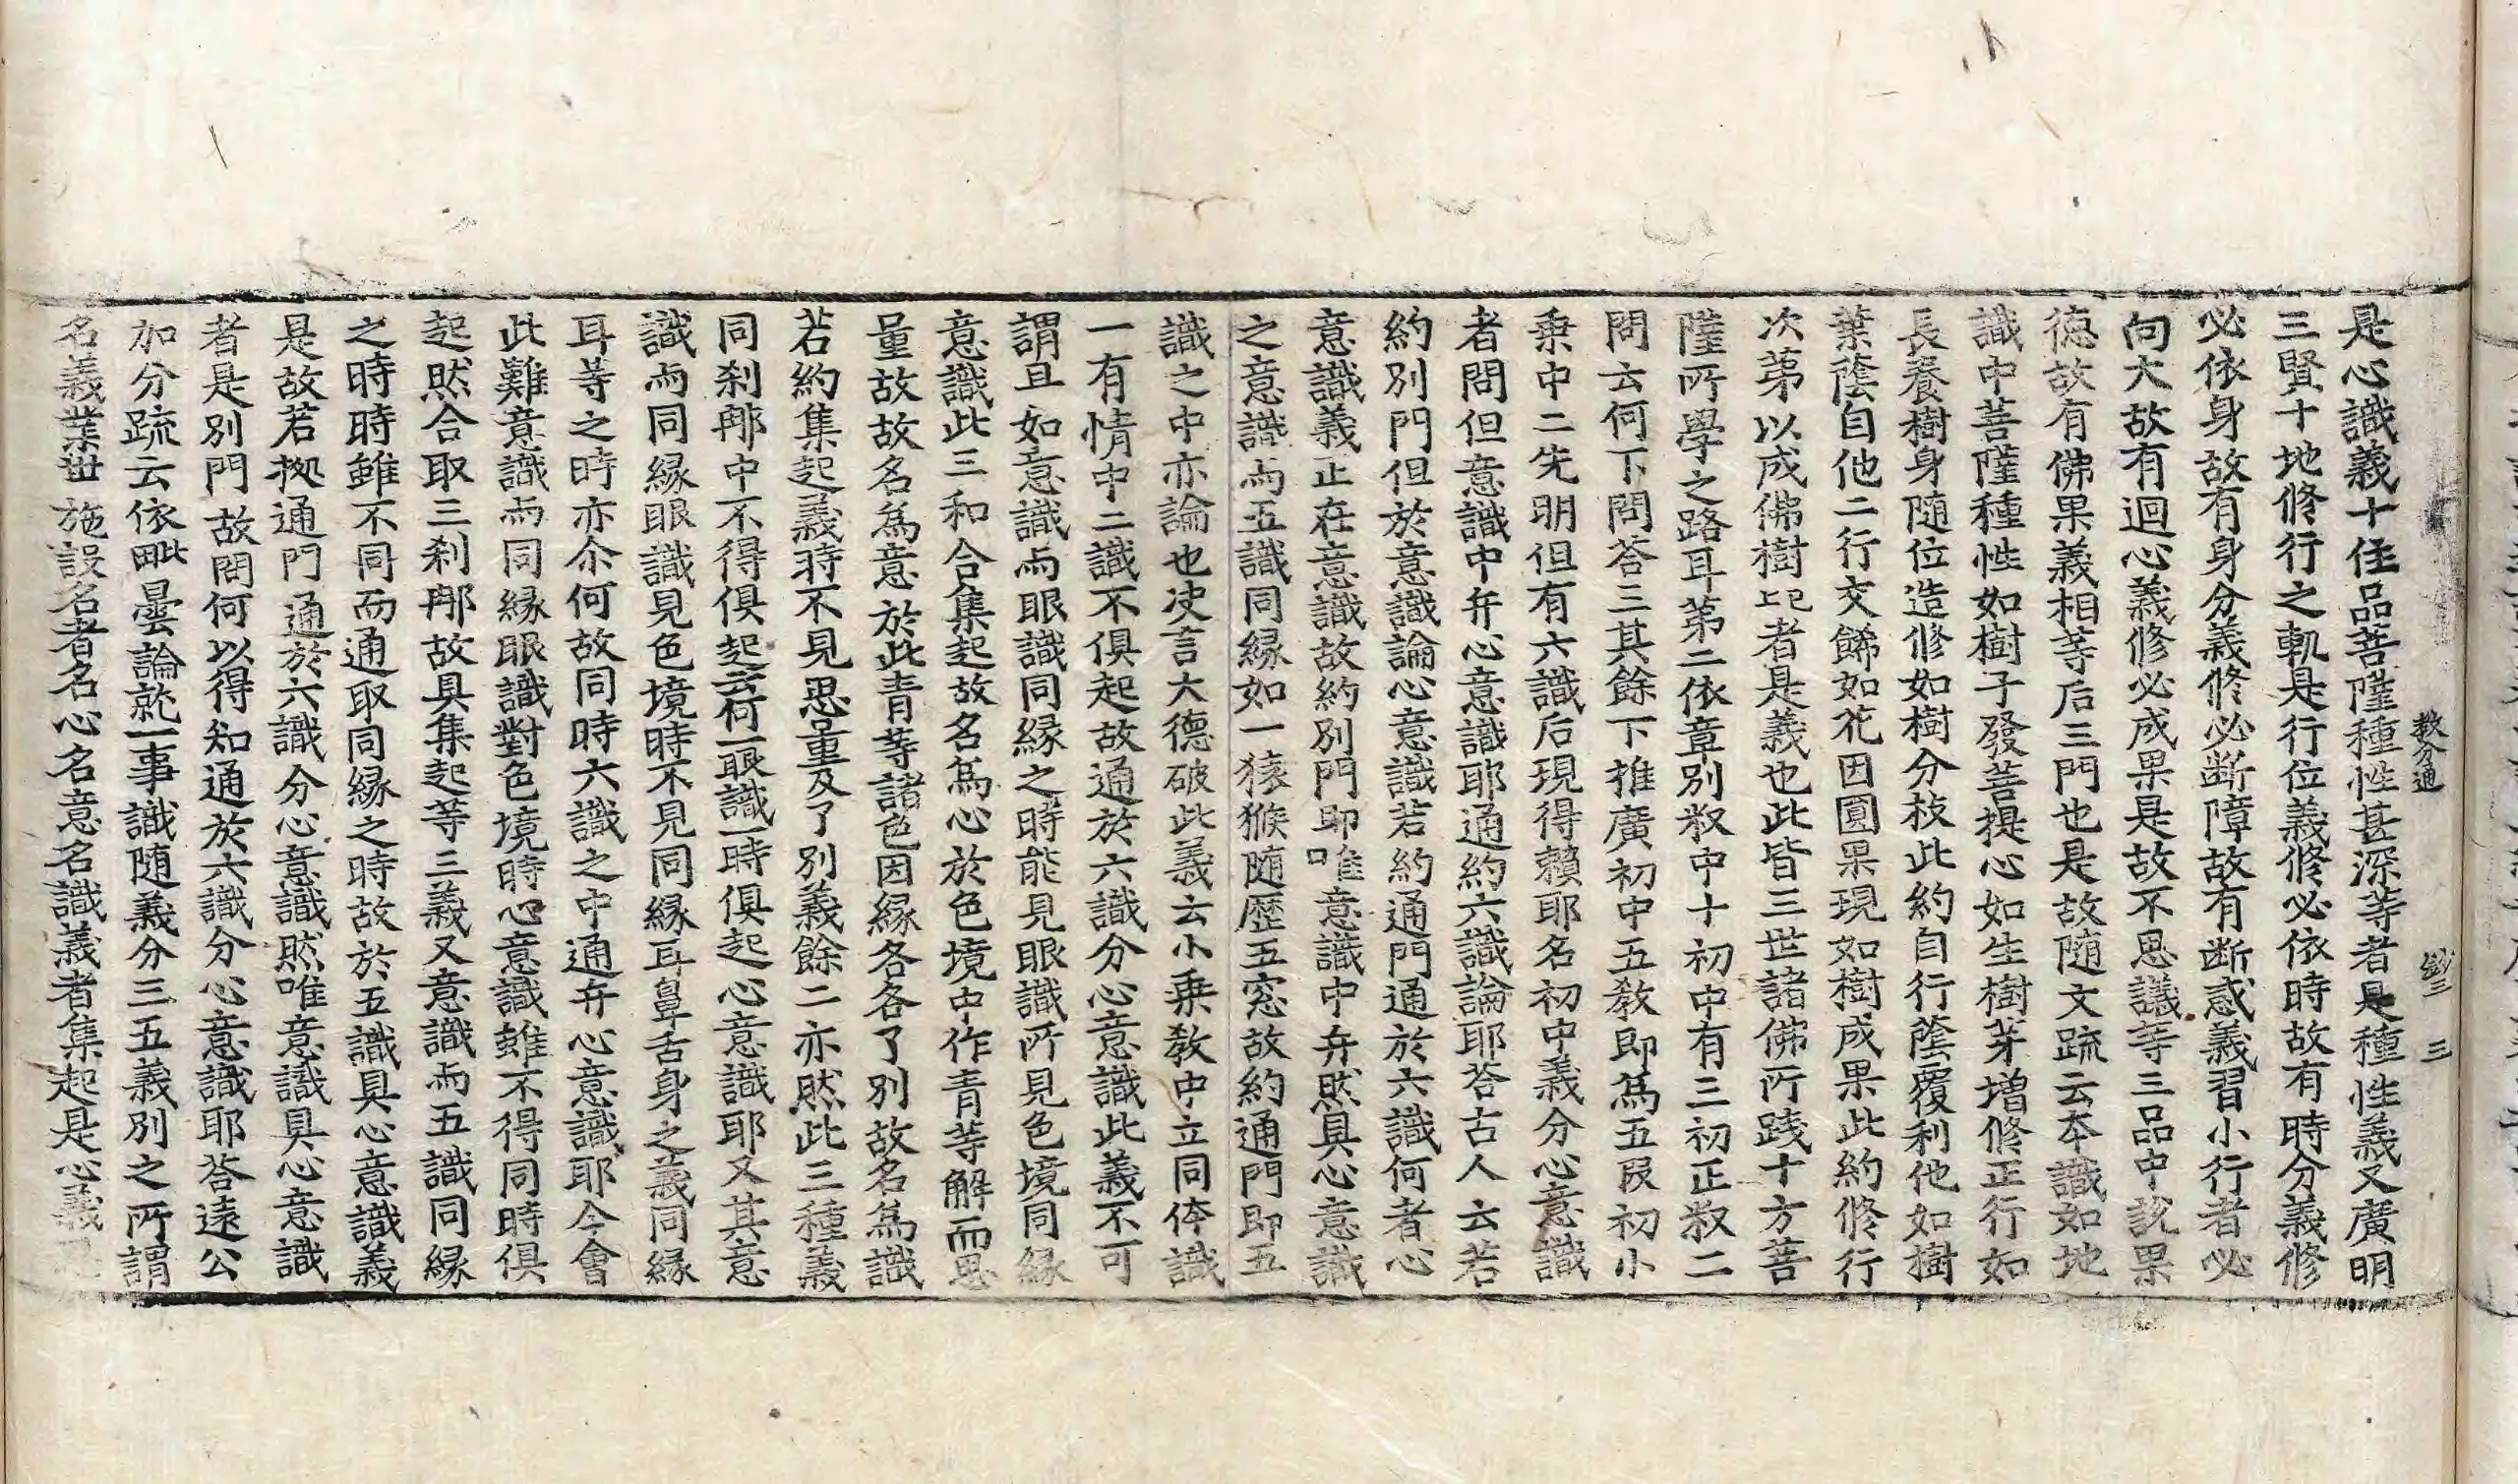 教分通 鈔三 三
是心識義十住品菩薩種性甚深等者是種性義又廣明
三賢十地修行之軌是行位義修必依時故有時分義修
必依身故有身分義修必断障故有断惑義習小行者必
向大故有迴心義修必成果是故不思議等三品中説果
德故有佛果義相等后三門也是故随文疏云本識如地
識中菩薩種性如樹子發菩提心如生樹芽增修正行如
長養樹身随位造修如樹分枝此約自行蔭覆利他如樹
葉蔭自他二行交餙如花因圓果現如樹成果此約修行
次第以成佛樹上已者是義也此皆三世諸佛所践十方菩
薩所學之路耳第二依章別叙中十初中有三初正叙二
問云何下問荅三其餘下推廣初中五教即為五叚初小
乗中二先明但有六識后現得頼耶名初中義分心意識
者問但意識中弁心意識耶通約六識論耶荅古人云若
約別門但於意識論心意識若約通門通於六識何者心
意識義正在意識故約別門即唯意識中弁然具心意識
之意識与五識同縁如一猿猴随歷五窓故約通門即五
識之中亦論也决言大德破此義云小乗教中立同体識
一有情中二識不俱起故通於六識分心意識此義不可
謂且如意識与眼識同縁之時能見眼識所見色境同縁
意識此三和合集起故名為心於色境中作青等解而思
量故故名為意於此青等諸色因縁各各了別故名為識
若約集起義時不見思量及了別義餘二亦然此三種義
同刹那中不得俱起云何一眼識一時俱起心意識耶又其意
識与同縁眼識見色境時不見同縁耳鼻舌身之義同縁
耳等之時亦尒何故同時六識之中通弁心意識耶今會
此難意識与同縁眼識對色境時心意識雖不得同時俱
起然合取三刹那故具集起等三義又意識与五識同縁
之時時雖不同而通取同縁之時故於五識具心意識義
是故若拠通門通於六識分心意識然唯意識具心意識
者是別門故問何以得知通於六識分心意識耶荅遠公
加分疏云依毗曇論就一事識随義分三五義別之所謂
名義業世施設名者名心名意名識義者集起是心義